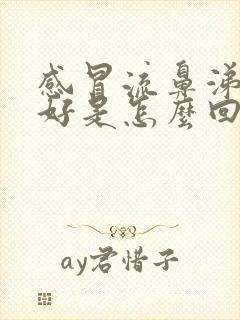 感冒流鼻涕
好是怎麼回
ay君惜子